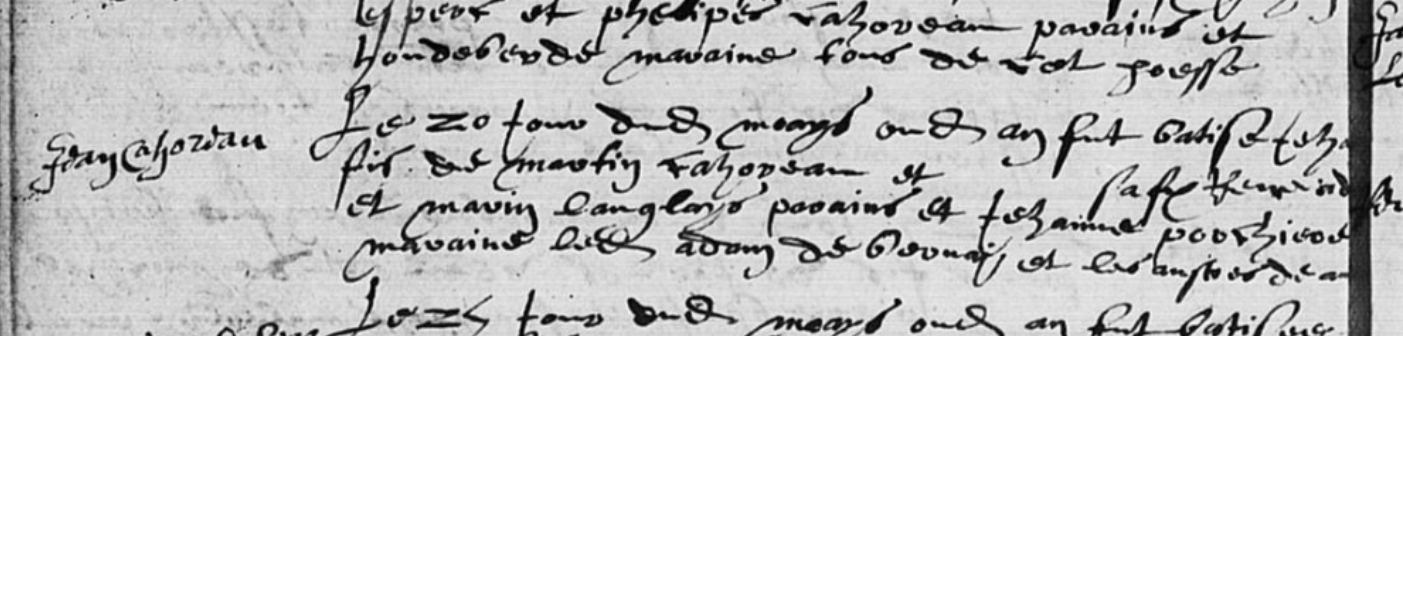 et phelipes cahoreau parains et
maraine tous de cet poesse
Jean Cahoreau
Le 20 jour dud moays oud an fut batise Jeha
fis de martin cahoreau et
sa fe Renee
et marin langloys parains et Jehanne porchiere
maraine led adam de bernay et les austres de
Le jour dud moays oud an fut batisee